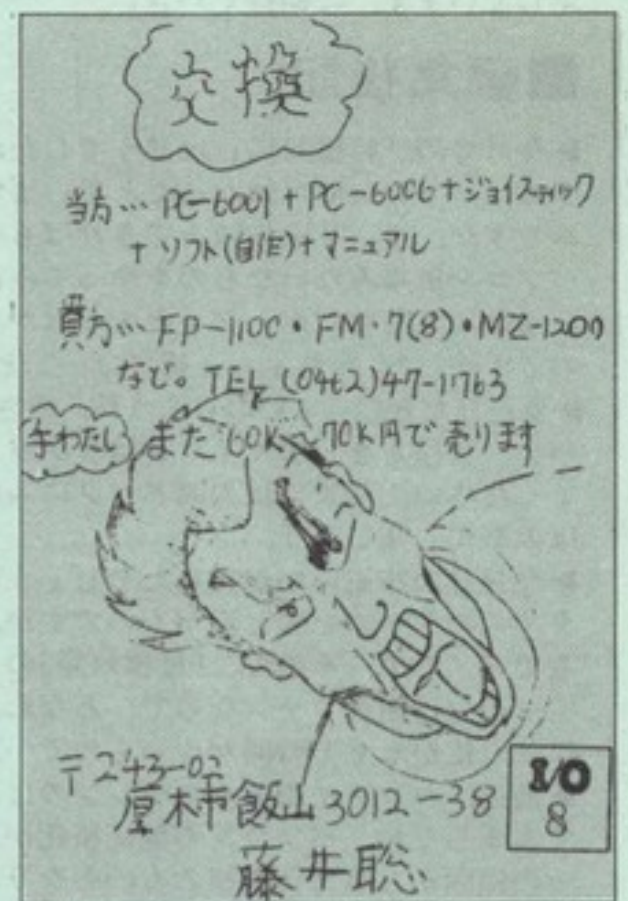 交換
当方… PC-6001 + PC-6006 + ジョイスティック
+ ソフト(自作) + マニュアル
貴方… FP-1100・FM・7(8)・MZ-1200
など。 TEL (0462)47-11763
手わたし また 60K〜70K円で売ります
〒243-02
厚木市飯山3012-38
藤井聡
I/O
8